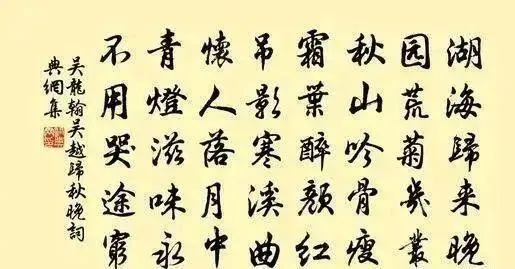 湖海歸来晚
园荒菊几叢
秋山吟骨瘦
霜葉醉顏紅
吊影寒溪曲
懷人落月中
青燈滋味永
不用哭途窮
吳龍翰吳越歸秋晚詞
典網集